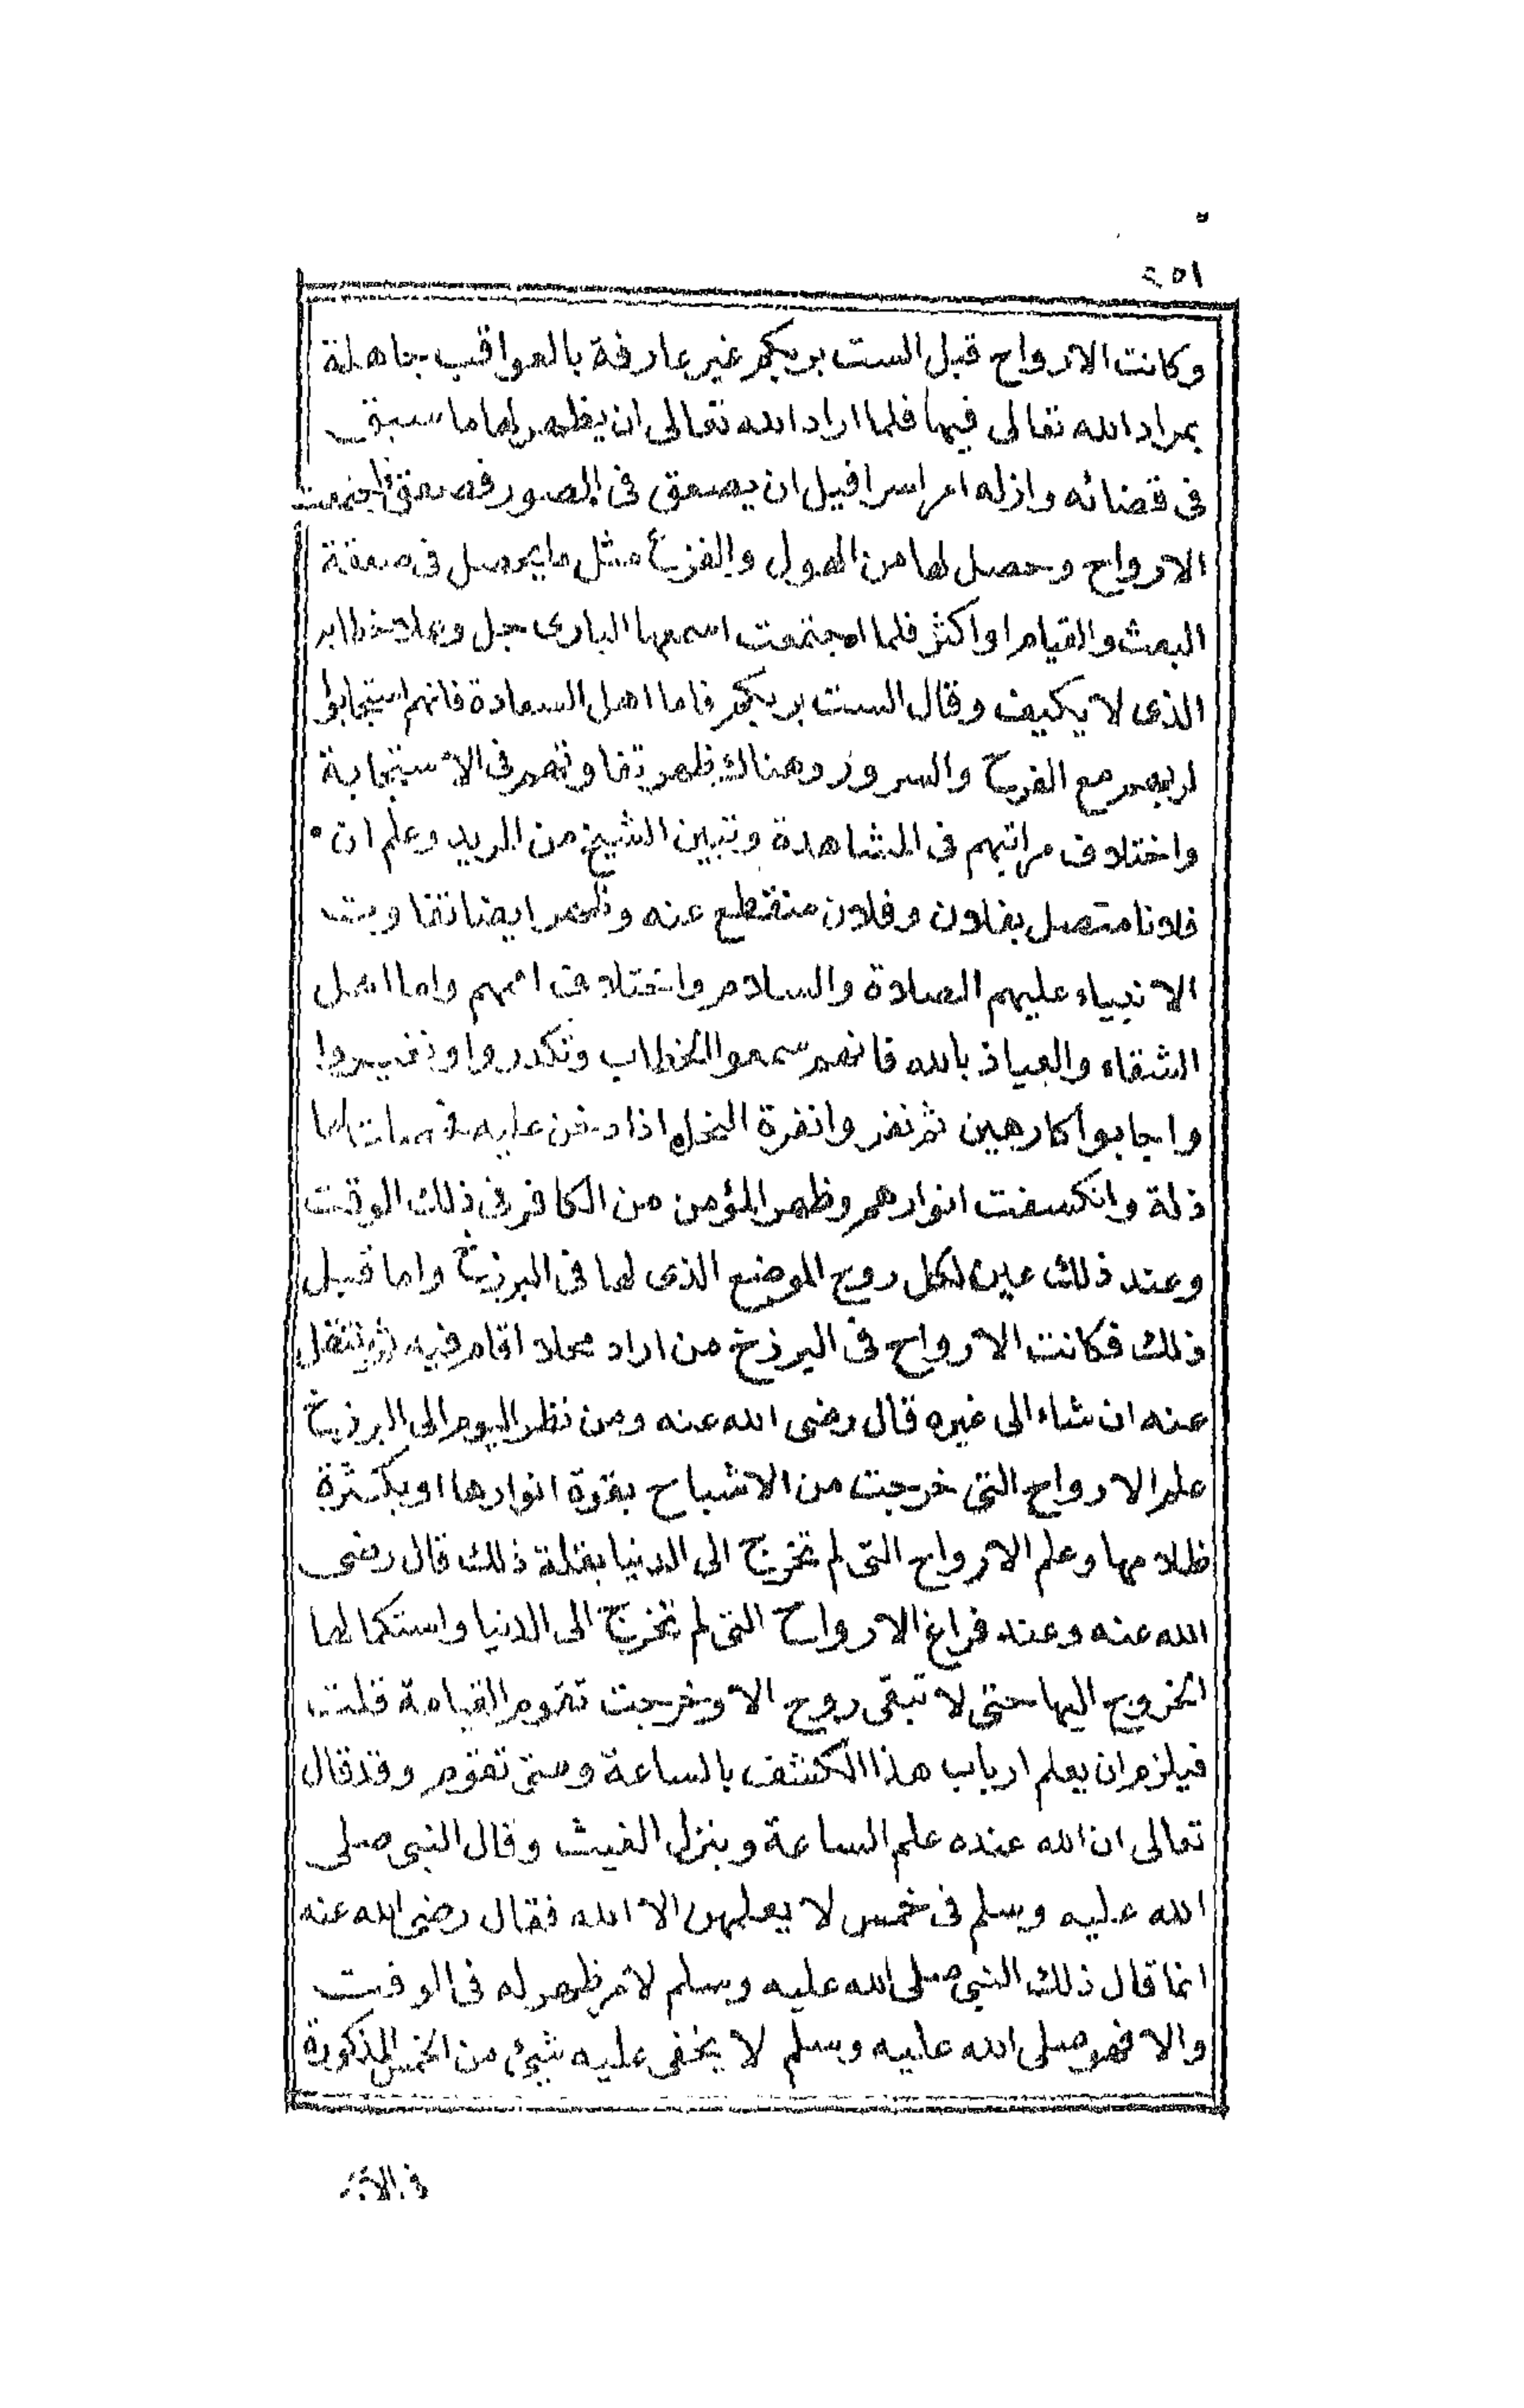 ٢٥١
وكانت الارواح قبل الست بربكم غير عارفة بالعواقب جاهلة
بمراد الله تعالى فيها فلما اراد الله تعالى ان يظهر لها ما سبق
فى قضائه وازله امر اسرافيل ان يصعق فى الصور فصعق فاجتمعت
الارواح وحصل لها من الهول والفزع مثل ما يحصل فى صعقة
البعث والقيام او اكثر فلما اجتمعت اسمعها البارى جل وعلا خطابه
الذى لا يكيف وقال الست بربكم فاما اهل السعادة فانهم استجابوا
لربهم مع الفرح والسرور وهناك ظهر تفاوتهم فى الاستجابة
واختلاف مراتبهم فى المشاهدة وتبين الشيخ من المريد وعلم ان
فلانا متصل بفلان وفلان منقطع عنه وظهر ايضا تفاوت
الانبياء عليهم الصلاة والسلام واختلاف اممهم واما اهل
الشقاء والعياذ بالله فانهم سمعوا الخطاب وتكدروا وتغيروا
واجابوا كارهين ثم نفروا نفرة النحل اذا دخن عليه فحصلت لها
ذلة وانكسفت انوارهم وظهر المؤمن من الكافر فى ذلك الوقت
وعند ذلك عين لكل روح الموضع الذى لها فى البرزخ واما قبل
ذلك فكانت الارواح فى البرزخ من اراد محلا اقام فيه ثم ينتقل
عنه ان شاء الى غيره قال رضى الله عنه ومن نظر اليوم الى البرزخ
علم الارواح التى خرجت من الاشباح بقوة انوارها او بكثرة
ظلامها وعلم الارواح التى لم تخرج الى الدنيا بقلة ذلك قال رضى
الله عنه وعند فراغ الارواح التى لم تخرج الى الدنيا واستكمالها
الخروج اليها حتى لا تبقى روح الا وخرجت تقوم القيامة قلت
فيلزم ان يعلم ارباب هذا الكشف بالساعة ومتى تقوم وقد قال
تعالى ان الله عنده علم الساعة وينزل الغيث وقال النبى صلى
الله عليه وسلم فى خمس لا يعلمهن الا الله فقال رضى الله عنه
انما قال ذلك النبى صلى الله عليه وسلم لامر ظهر له فى الوقت
والا فهو صلى الله عليه وسلم لا يخفى عليه شىء من الخمس المذكورة